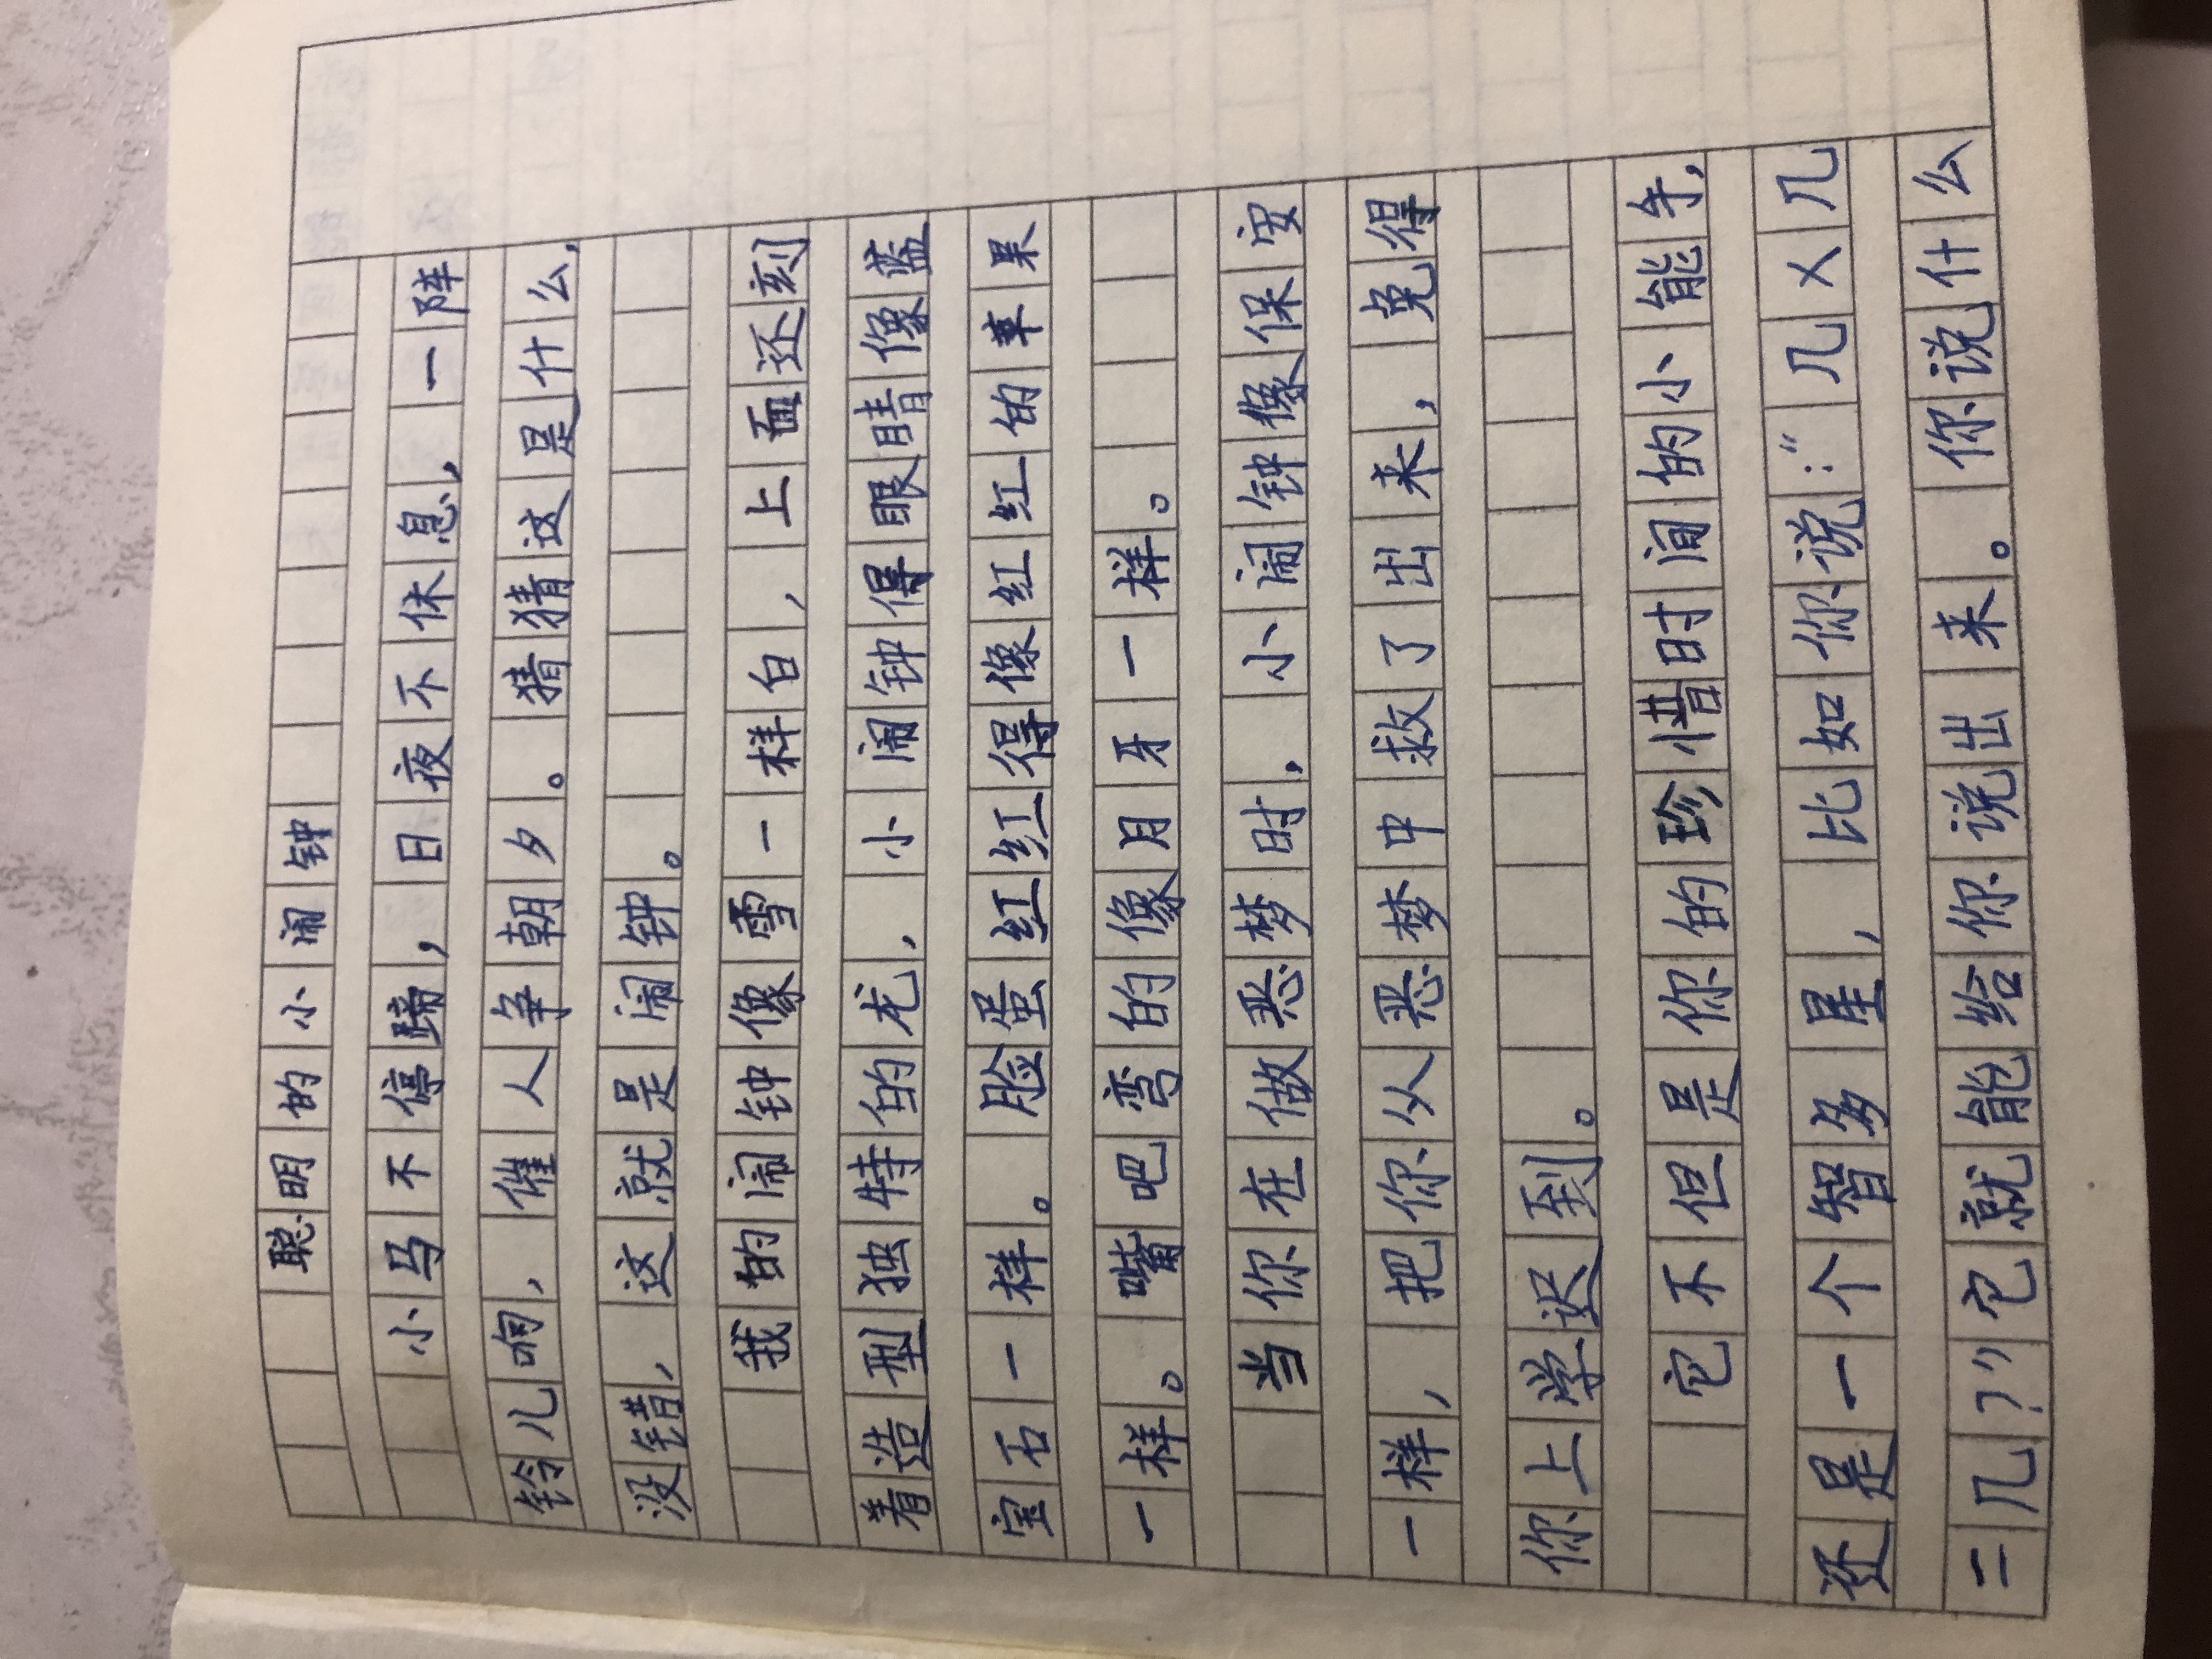 聪明的小闹钟
小马不停蹄，日夜不休息，一阵
铃儿响，催人争朝夕。猜猜这是什么，
没错，这就是闹钟。
我的闹钟像雪一样白，上面还刻
着造型独特的龙，小闹钟得眼睛像蓝
宝石一样。脸蛋红红得像红红的苹果
一样。嘴吧弯的像月牙一样。
当你在做恶梦时，小闹钟像保安
一样，把你从恶梦中救了出来，免得
你上学迟到。
它不但是你的珍惜时间的小能手，
还是一个智多星，比如你说：“几×几
=几？”它就能给你说出来。你说什么